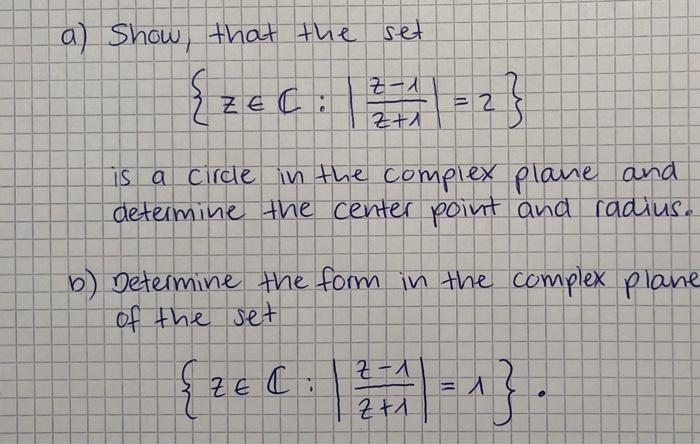 a) Show, that the set
{ z ∈ ℂ : | (z-1)/(z+1) | = 2 }
is a circle in the complex plane and
determine the center point and radius.
b) Determine the form in the complex plane
of the set
{ z ∈ ℂ : | (z-1)/(z+1) | = 1 }.